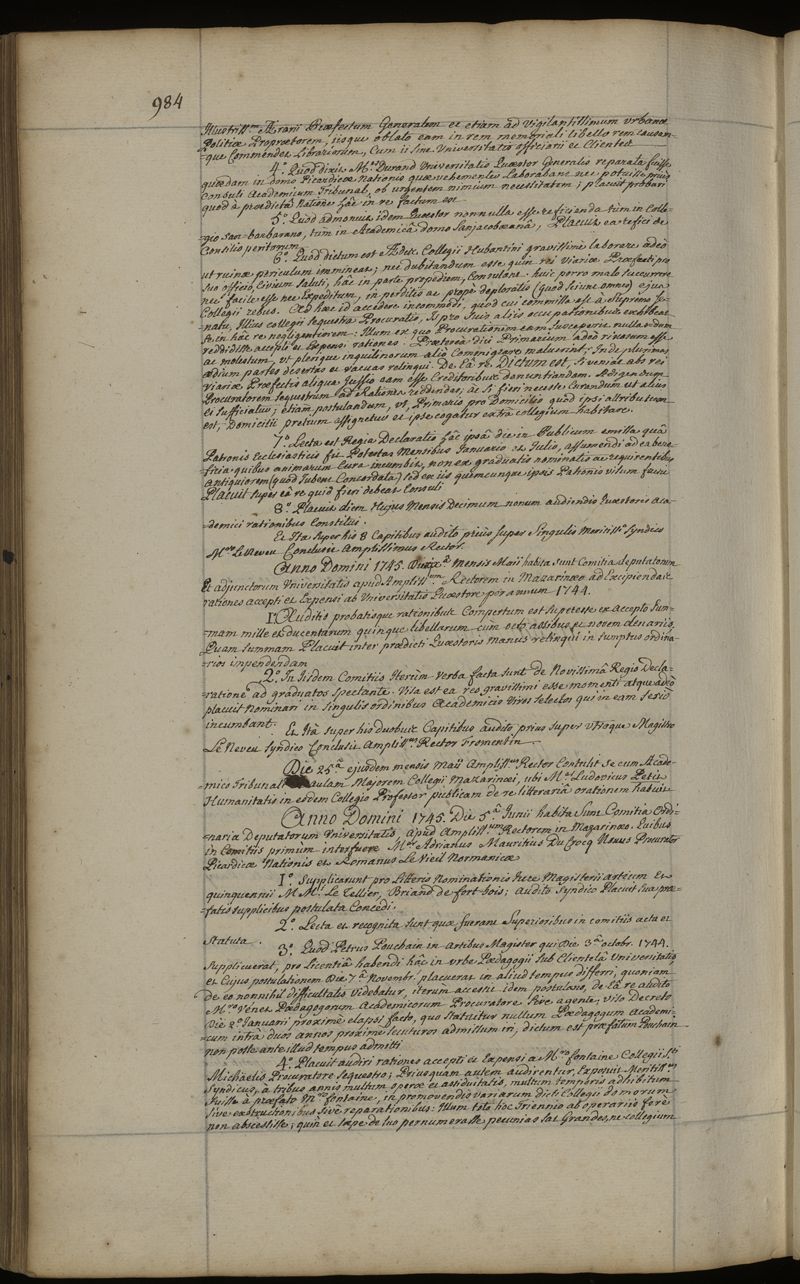 984
Illustriss.um Ærarii Præfectum Generalem et etiam ad Vigilantissimum urbanæ
Politiæ Proprætorem, iisque oblato eam in rem memoriali libello rem causam-
-que Commendet Librariorum, Cum ii sine Universitatis officiarii et Clientes
4.º Quod dixit M.er Durand Universitatis Quæstor Generalis reparata fuisse
quædam in domo Picardicæ Nationis quæ vehementer Laborabant nec potuisse prius
Consuli Academicum Tribunal, ob urgentem nimium necessitatem; placuit probari
quod à prædictâ Natione hâc in re factum est.
5.º Quod admonuit idem Quæstor nonnulla esse reficienda tùm in Colle-
-gio San-barbarano, tùm in Academicâ domo Sanjacobæanâ, Placuit ea refici de
Consilio peritorum.
6.º Quod dictum est Ædes Collegii Hubantini gravissimè laborare adeò
ut ruinæ periculum immineat; nec dubitandum esse quin rei Viariæ Præfecti, pro
suo officio, Civium saluti, hâc in parte propediem, Consulant. huic porro malo succurrere
nec facile esse nec Expeditum, in perditis ac propè deploratis (quod sciunt omnes) ejus
Collegii rebus. Ad hæc id accedere incommodi, quod cui commissa est à supremo se-
natu, illius collegii sequestra Procuratio, is pro suis aliis occupationibus exhibeat
se in hâc re negligentiorem: Illum ex quo Procurationem eam susceperit nullas dum
reddidisse accepti et Expensi rationes. Prætereà dici Primarium adeò rixosum esse
ac molestum, ut plerique inquilinorum aliò Commigrare maluerint; Inde plurimas
ædium partes desertas et vacuas relinqui. De Eâ re Dictum est, si veniat abs rei
viariæ Præfectis aliqua Jussio eam esse Creditoribus denuntiandam. Adigendum
Procuratorem sequestrum ad Rationes reddendas, ac si fieri necesse Curandum ut alius
ei sufficiatur; etiam postulandum, ut, Primario pro Domicilio quod ipsi attributum
est, Domicilii pretium assignetur et ipse cogatur extrà collegium habitare.
7.º Lecta est Regia Declaratio hâc ipsâ die in Publicum emissa quâ
Patronis Ecclesiasticis fit Potestas Mensibus Januario et Julio, assumendi ad ea bene-
ficia quibus animarum Cura incumbit, non ex graduatis nominatis ac requirentibus
Antiquiorem (quod Jubent Concordata) sed ex iis quemcunque ipsis Patronis visum fuerit
Placuit super eâ re quid fieri debeat Consuli
8.º Placuit diem Hujus Mensis Decimum nonum audiendis Quæstoris Aca-
-demici rationibus Constitui.
Et Ita super his 8 Capitibus audito priùs super singulis Meritiss.o Syndico
M.ro LeNeveu Conclusit Amplissimus Rector.
Anno Domini 1745. Mensis Maii habita sunt Comitia deputatorum
Et adjunctorum Universitatis apud Ampliss.um Rectorem in Mazarinæo ad Excipiendas
rationes accepti et Expensi ab Universitatis Quæstore pro annum 1744.
1.º Auditis probatisque rationibus Compertum est superesse ex Accepto sum-
-mam mille et ducentarum quinque libellarum cum octo assibus et novem denariis.
Quam summam Placuit inter prædicti Quæstoris manus relinqui in sumptus ordina-
-rios impendendam
2.º In Iisdem Comitiis Iterùm verba facta sunt de Novissimâ Regis Decla-
-ratione ad graduatos spectante. Visa est ea res gravissimi esse momenti atque adeò
placuit nominari in singulis ordinibus Academicis viros selectos qui in eam seriò
incumbant.
Et Ità super his duobus Capitibus audito, priùs super utroque Magistro
LeNeveu Syndico Conclusit Ampliss.us Rector Fromentin
Die 25.â ejusdem mensis Maii Ampliss.us Rector Contulit se cum Acade-
-mico Tribunali aulam Majorem Collegii Mazarinæi, ubi M.er Ludovicus Petit
Humanitatis in eodem Collegio Professor publicam de re litterariâ orationem habuit
Anno Domini 1745. Die 5.â Junii habita sunt Comitia Ordi-
-naria Deputatorum Universitatis, apud Ampliss.um Rectorem in Mazarinæo. Quibus
in Comitiis primùm interfuere M.er Adrianus Mauritius Du Crocq Novus Procurator
Picardicæ Nationis et Romanus Le Vieil Normanicæ
1.º Supplicarunt pro Litteris Nominationis sitee Magisterii artium et
quinquennii MM. Le Tellier, Briand de fort-bois; audito Syndico Placuit sua præ-
-fatis supplicibus postulata Concedi.
2.º Lecta et recognita sunt quæ fuerant superioribus in comitiis acta et
Statuta.
3.º Quod Petrus Pouchain in Artibus Magister qui Die 3.â octobr. 1744.
Supplicuerat, pro Licentiâ habendi hâc in urbe Pædagogii sub Clientelâ Universitatis
et Cujus postulationem Die 7.â Novembr. placuerat in aliud tempus differri, quoniam
de eo nonnihil difficultatis videbatur, iterum accessit idem postulans, de Eâ re audito
M.ro Venet Pædagogorum Academicorum Procuratore sive agente, viso Decreto
Die 2.â Januarii proximè elapsi facto, quo statuitur nullum Pædagogum academi-
cum intrà duos annos proximè secuturos admissum iri, dictum est præfatum Pouchain
non posse ante illud tempus admitti
4.º Placuit audiri rationes accepti et Expensi a M.ro fontaine Collegii S.ti
Michaelis Procuratore sequestro; Priusquam autem audirentur, Exposuit Meritiss.us
Syndicus, à tribus annis multum operæ et assiduitatis, multum temporis adhibitum
fuisse à præfato M.ro fontaine, in promovendis variarum dicti Collegii domorum
sive exstructionibus sive reparationibus: Illum toto hoc Triennio ab operariis ferè
non abscessisse; quin et sæpe de suo pernumerasse pecunias sat Grandes, ne collegium